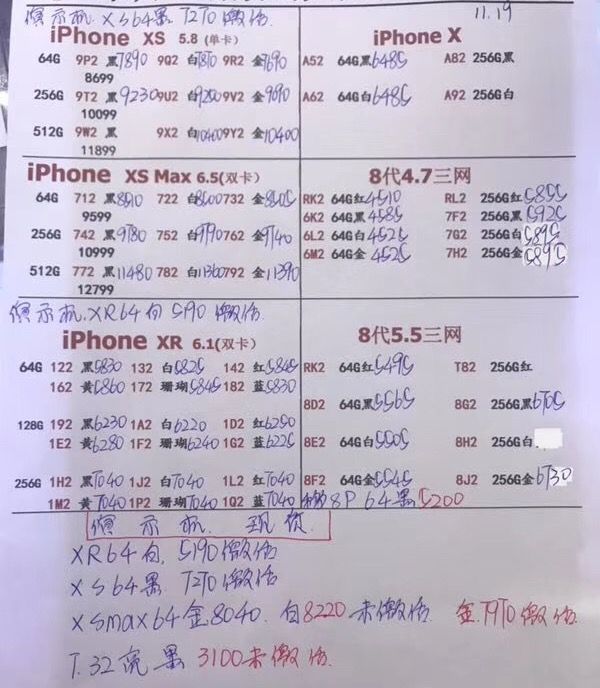 演示机 XS64黑 7270激活
11.19
iPhone XS 5.8 (单卡)
64G 9P2 黑7890 9Q2 白7870 9R2 金7690
8699
256G 9T2 黑9230 9U2 白9200 9V2 金9090
10099
512G 9W2 黑 9X2 白10400 9Y2 金10400
11899
iPhone X
A52 64G黑6485 A82 256G黑
A62 64G白6485 A92 256G白
iPhone XS Max 6.5(双卡)
64G 712 黑8510 722 白8500 732 金8505
9599
256G 742 黑9780 752 白9790 762 金9740
10999
512G 772 黑11480 782 白11360 792 金11390
12799
8代4.7三网
RK2 64G红4510 RL2 256G红5855
6K2 64G黑4585 7F2 256G黑5925
6L2 64G白4525 7G2 256G白5895
6M2 64G金4525 7H2 256G金5895
演示机.XR64白 5190激活.
iPhone XR 6.1(双卡)
64G 122 黑5830 132 白5825 142 红5845
162 黄5860 172 珊瑚5845 182 蓝5830
128G 192 黑6230 1A2 白6220 1D2 红6250
1E2 黄6280 1F2 珊瑚6240 1G2 蓝6225
256G 1H2 黑7040 1J2 白7040 1L2 红7040
1M2 黄7040 1P2 珊瑚7040 1Q2 蓝7040
8代5.5三网
RK2 64G红5495 T82 256G红
8D2 64G黑5565 8G2 256G黑6705
8E2 64G白5505 8H2 256G白
8F2 64G金5545 8J2 256G金6730
8P 64黑 5200
演示机 现货
XR64白. 5190激活
XS64黑 7270激活
XSmax64金8040. 白8220未激活. 金.7970激活
7.32亮黑 3100未激活.